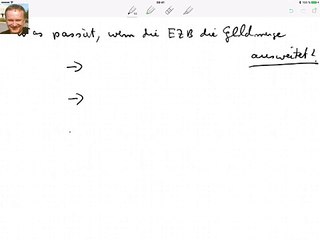 Was passiert, wenn die EZB die Geldmenge
ausweitet?
→
→